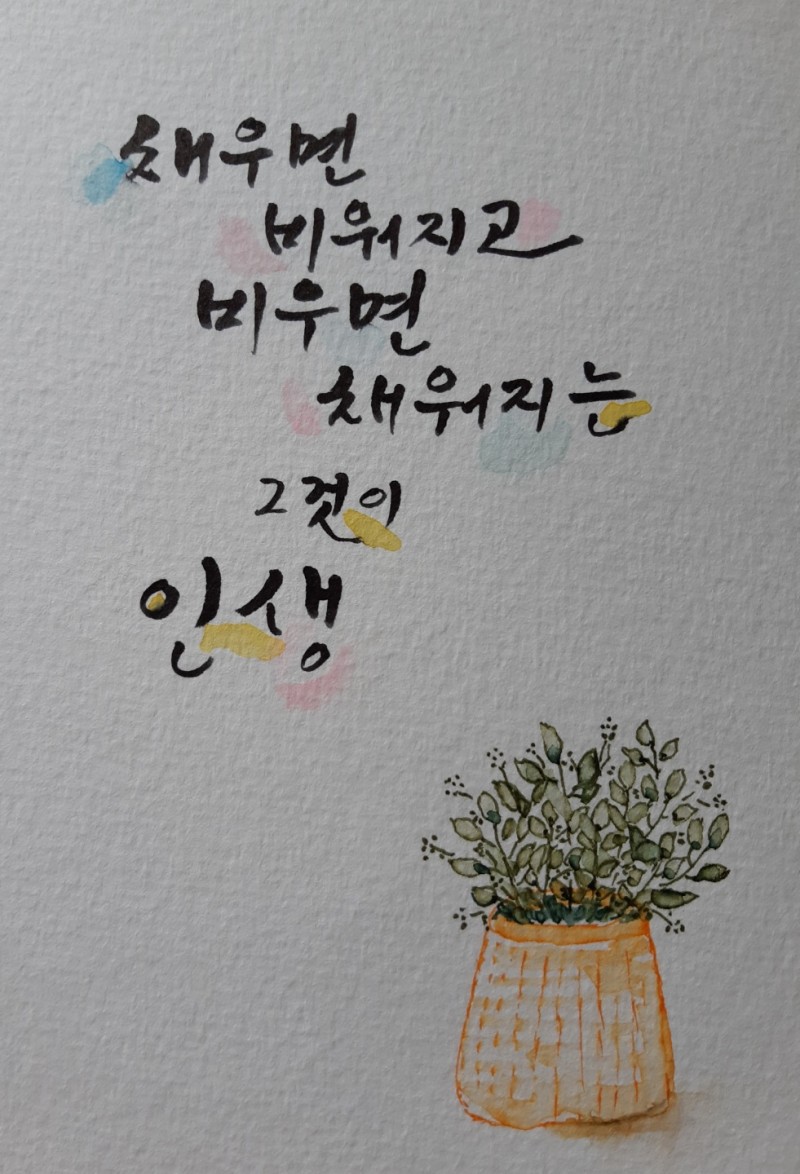 채우면
비워지고
비우면
채워지는
그것이
인생